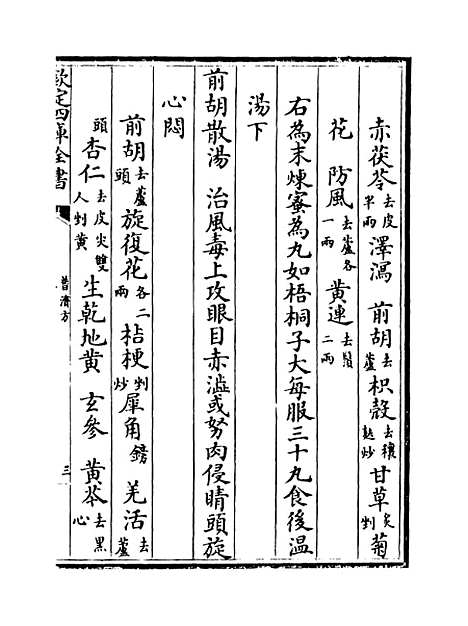 赤茯苓去皮半兩澤瀉 前胡去蘆枳殼去穰麩炒甘草炙剉菊
花 防風去蘆各一兩 黃連去鬚二兩
右為末煉蜜為丸如梧桐子大每服三十丸食後温
湯下
前胡散湯 治風毒上攻眼目赤澁或努肉侵睛頭旋
心悶
前胡去蘆頭旋復花各二兩桔梗剉炒犀角鎊 羌活去蘆
頭杏仁去皮尖雙人剉黃生乾地黃 玄參 黃芩去黑心
欽定四庫全書
普濟方
三